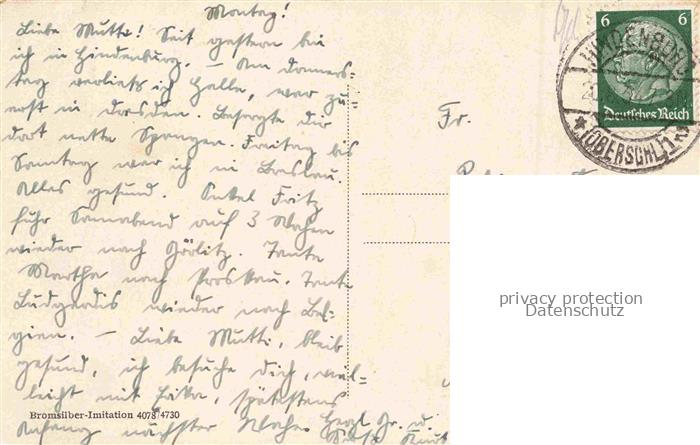 Montag!
Liebe Mutti! Seit gestern bin
ich in Hindenburg. – Am Donners-
tag verließ ich Halle, war zu-
erst in Dresden. Besorgte dir
dort nette Spangen. Freitag bis
Sonntag war ich in Breslau.
Alles gesund. Onkel Fritz
fuhr Sonnabend auf 3 Wochen
wieder nach Görlitz. Tante
Martha nach Proskau. Tante
Ludgardis wieder nach Bel-
gien. – Liebe Mutti, bleib
gesund, ich besuche dich, viel-
leicht mit Erika, spätestens
Anfang nächster Woche. Herzl. Gr. u.
Fr.
6 6
Deutsches Reich
HINDENBURG
(OBERSCHL) 1
Bromsilber-Imitation 4078/4730
privacy protection
Datenschutz